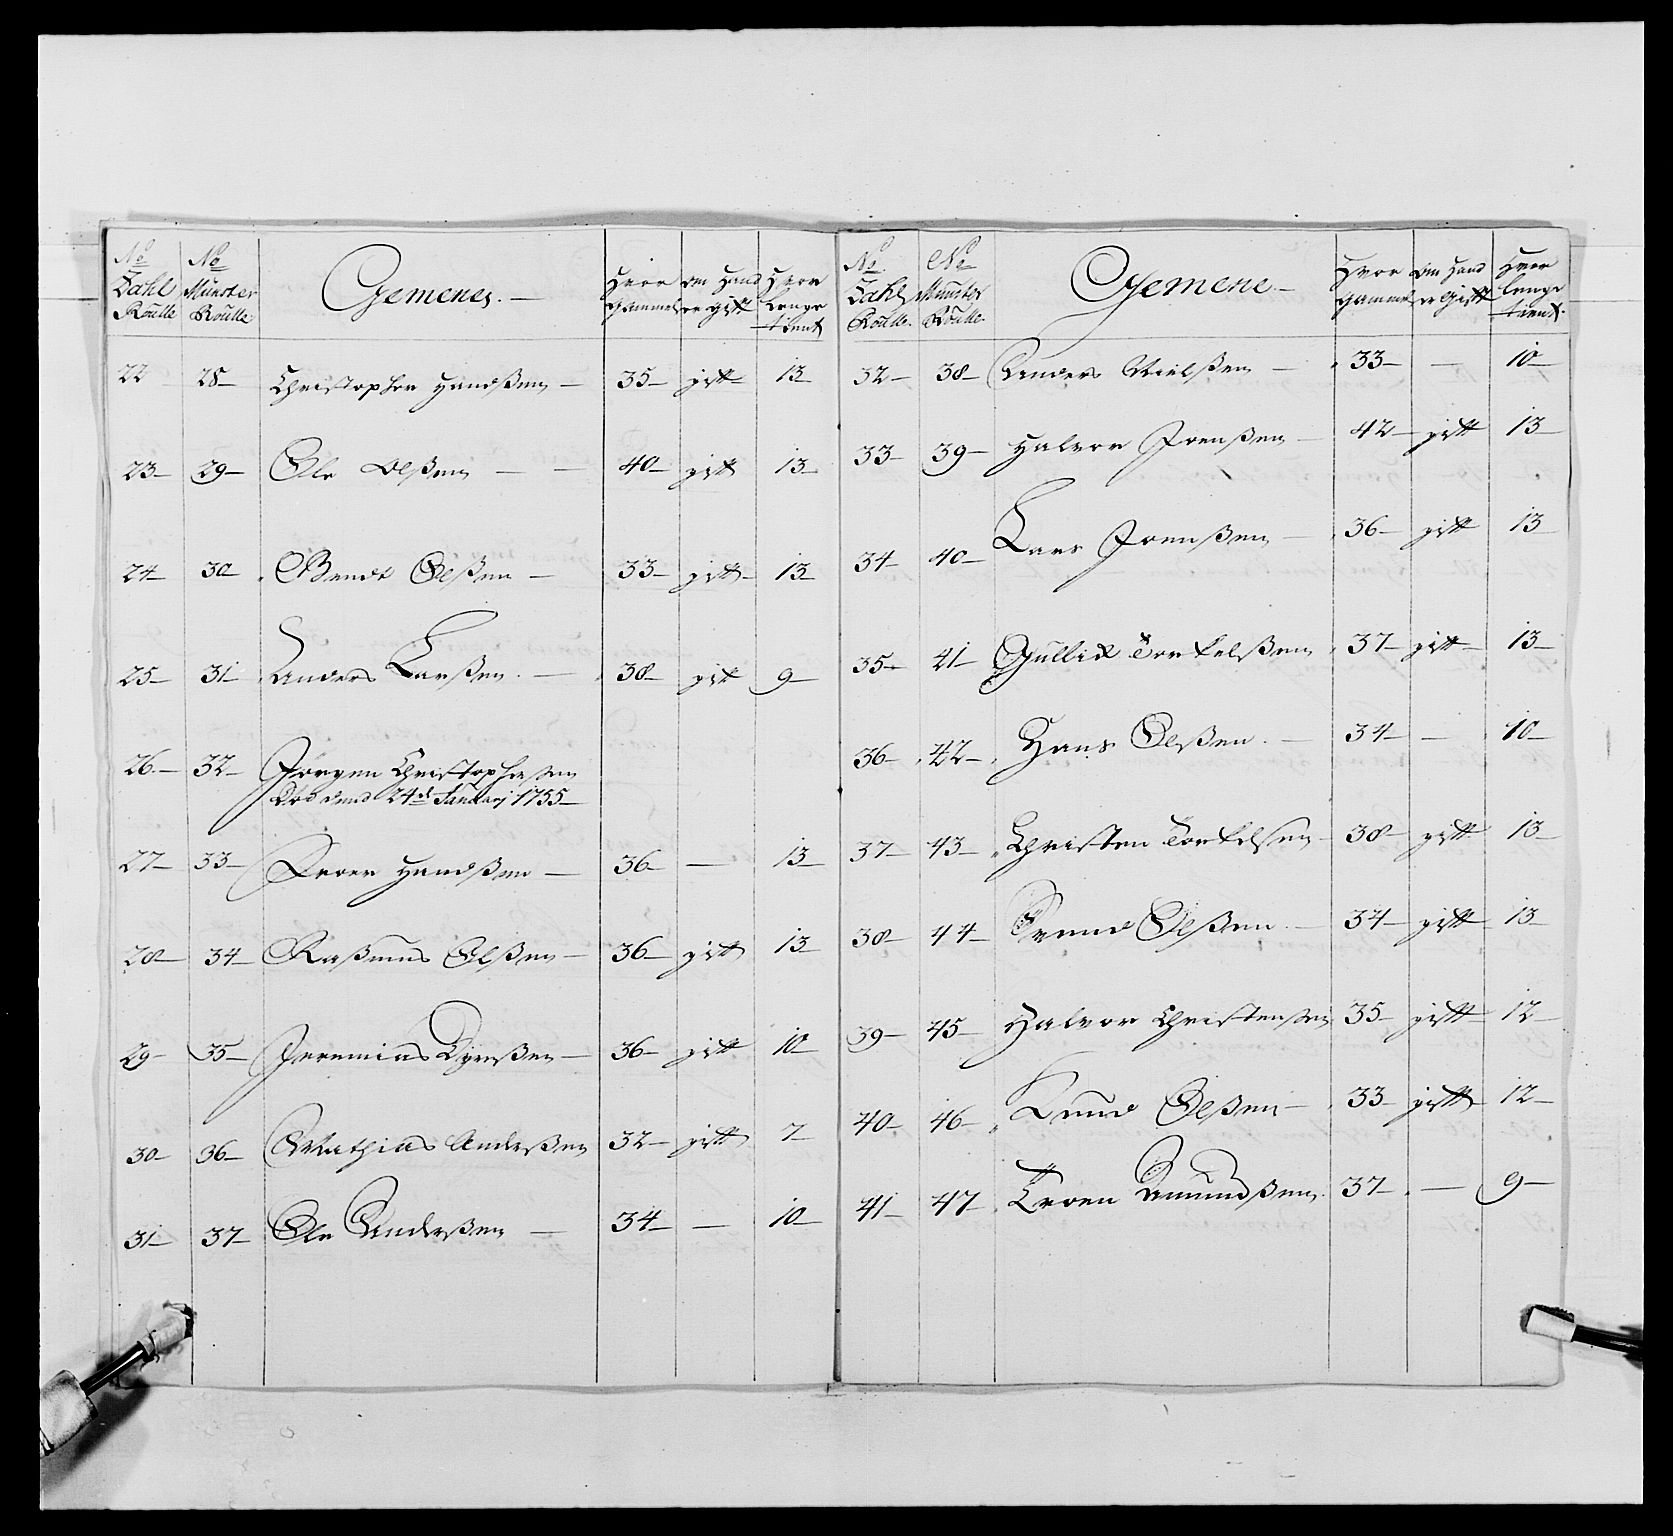 No Zahl Roulle | No Münster Roulle | Gemenes. — | Hvor gammel | om Hand er gift | Hvor Lenge tient
22 28 — Christopher Handßen — 35 — gift — 13
23 — 29 — Ole Olßen — — 40 — gift 13
24 — 30 Bendt Olßen — 33 — gift — 13
25 — 31 Anders Larßen. — 38 — gift 9 —
26 — 32 — Jörgen Christophersen
Död dend 24de Januarij 1755 —
27 — 33 — Peder Handßen — 36 — — 13 —
28 — 34 — Raßmus Olßen — 36 — gift 13 —
29 — 35 — Jeremias — 36 — gift 10 —
30 — 36 — Mathias Anderßen 32 — gift 7 —
31 — 37 — Ole Anderßen — 34 — — 10 —
No Zahl Roulle. | No Münster Roulle. | Gemene — | Hvor gammel | om Hand er Gift | Hvor lenge tient.
32 — 38 — Anders Nielßen — 33 — — 10 —
33 — 39 — Halvor Joenßen — 42 — gift 13 —
34 — 40 — Lars Joenßen — 36 — gift 13
35 — 41 — Gullick Torkelßen 37 — gift — 13 —
36 — 42 — Hans Olßen. — 34 — — 10 —
37 — 43 — Christen Torkelsen — 38 — gift 13 —
38 — 44 — Svend Olßen — 34 — gift — 13 —
39 — 45 — Halvor Christensen 35 — gift — 12 —
40 — 46 — Knud Olßen — 33 gift 12 —
41 — 47 Troen Amundßen. 37 — — 9 —